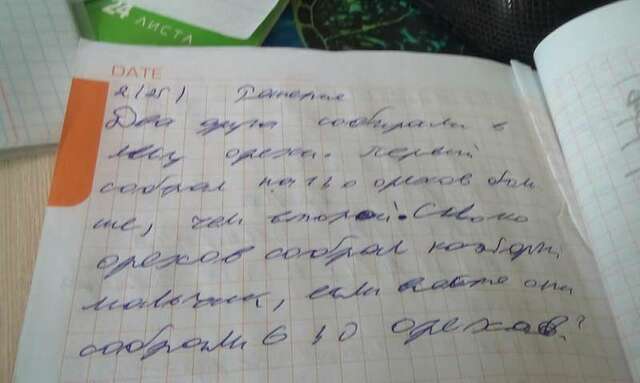 24 ЛИСТА
DATE
2 (25)
Два друга собирали в
лесу орехи. Первый
собрал на орехов боль
ше, чем второй. Сколько
орехов собрал каждый
мальчик, если они
собрали 610 орехов?